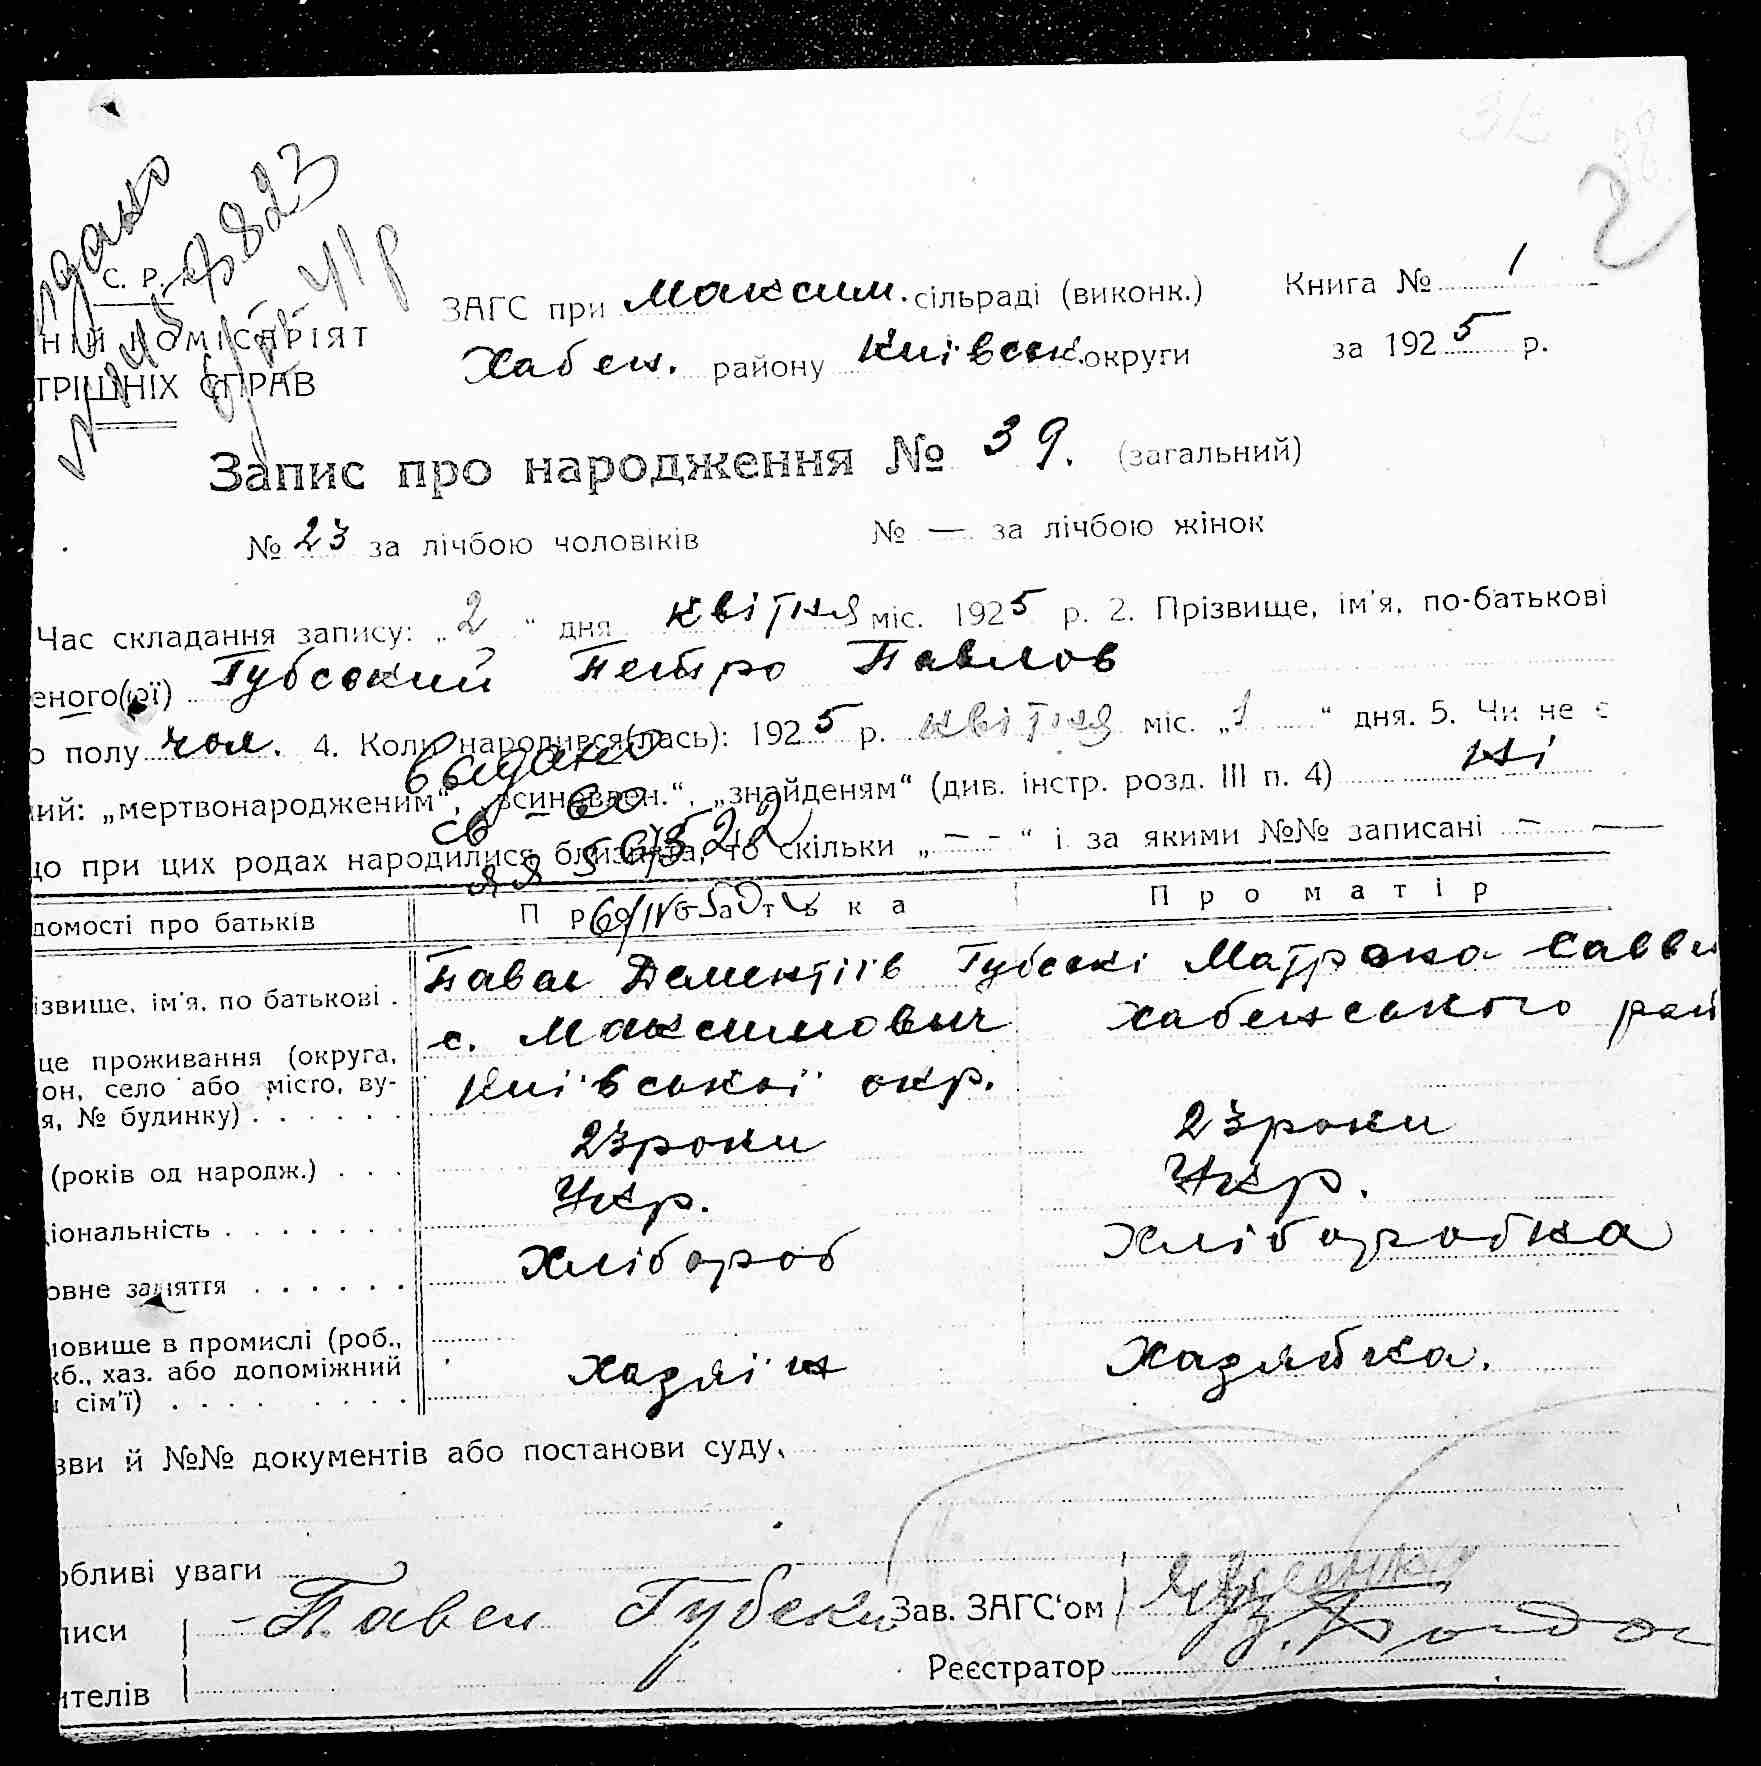 2
С. Р. Р.
НІЙ КОМІСАРІЯТ
ТРІШНІХ СПРАВ
ЗАГС при Максим. сільраді (виконк.) Книга № 1
Хабен. району Київськ. округи за 1925 р.
Запис про народження № 39. (загальний)
№ 23 за лічбою чоловіків № — за лічбою жінок
Час складання запису: „2“ дня квітня міс. 1925 р. 2. Прізвище, ім'я, по-батькові
еного(ої) Губський Петро Павлов
о полу чол. 4. Коли народився(лась): 1925 р. квітня міс. „1“ дня. 5. Чи не є
ий: „мертвонародженим“, „всиновлен.“, „знайденям“ (див. інстр. розд. III п. 4) ні
що при цих родах народилися близнята, то скільки „— –“ і за якими №№ записані – —
выдано
св-во
домості про батьків Про батька Про матір
ізвище, ім'я, по батькові . Павел Дементіїв Губські Матрона Савви
це проживання (округа, с. Максимович Хабенського рай
он, село або місто, ву- Київської окр.
я, № будинку) . . . . . .
(років од народж.) . . . 23 роки 23 роки
ціональність . . . . . . . Укр. Укр.
овне заняття . . . . . . Хлібороб Хліборобка
новище в промислі (роб.,
жб., хаз. або допоміжний Хазяїн Хазяйка.
и сім'ї) . . . . . . . . .
зви й №№ документів або постанови суду.
обливі уваги
писи Павел Губски Зав. ЗАГС'ом
ителів Реєстратор